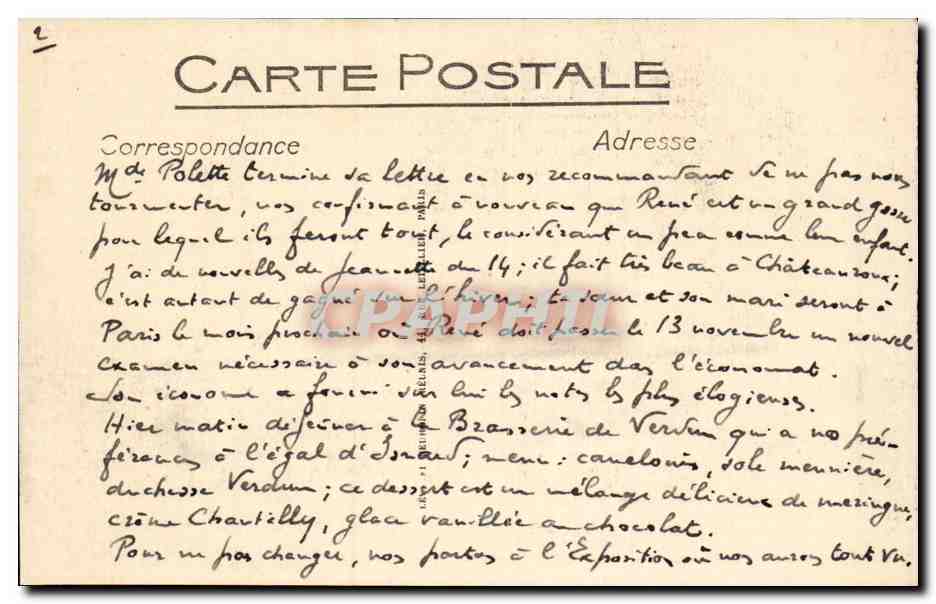 2
CARTE POSTALE
Correspondance
Adresse
Mde Polette termine sa lettre en nos recommandant de ne pas nous
tourmenter, nos confirmant à nouveau que René est un grand gosse
pour lequel ils feront tout, le considérant un peu comme leur enfant.
J'ai de nouvelles de Jeannette du 14; il fait très beau à Châteauroux;
c'est autant de gagné sur l'hiver; ta sœur et son mari seront à
Paris le mois prochain où René doit passer le 13 novembre un nouvel
examen nécessaire à son avancement dans l'économat.
Son économe a fourni sur lui les notes les plus élogieuses.
Hier matin déjeuner à la Brasserie de Verdun qui a nos pré-
férences à l'égal d'Isnard; menu: canelonis, sole meunnière,
duchesse Verdun; ce dessert est un mélange délicieux de meringue,
crème Chantilly, glace vanillée au chocolat.
Pour ne pas changer, nos partons à l'Exposition où nos aurons tout vu.
LÉVY & NEURDEIN RÉUNIS, 44, RUE LETELLIER, PARIS
CPAPHIL